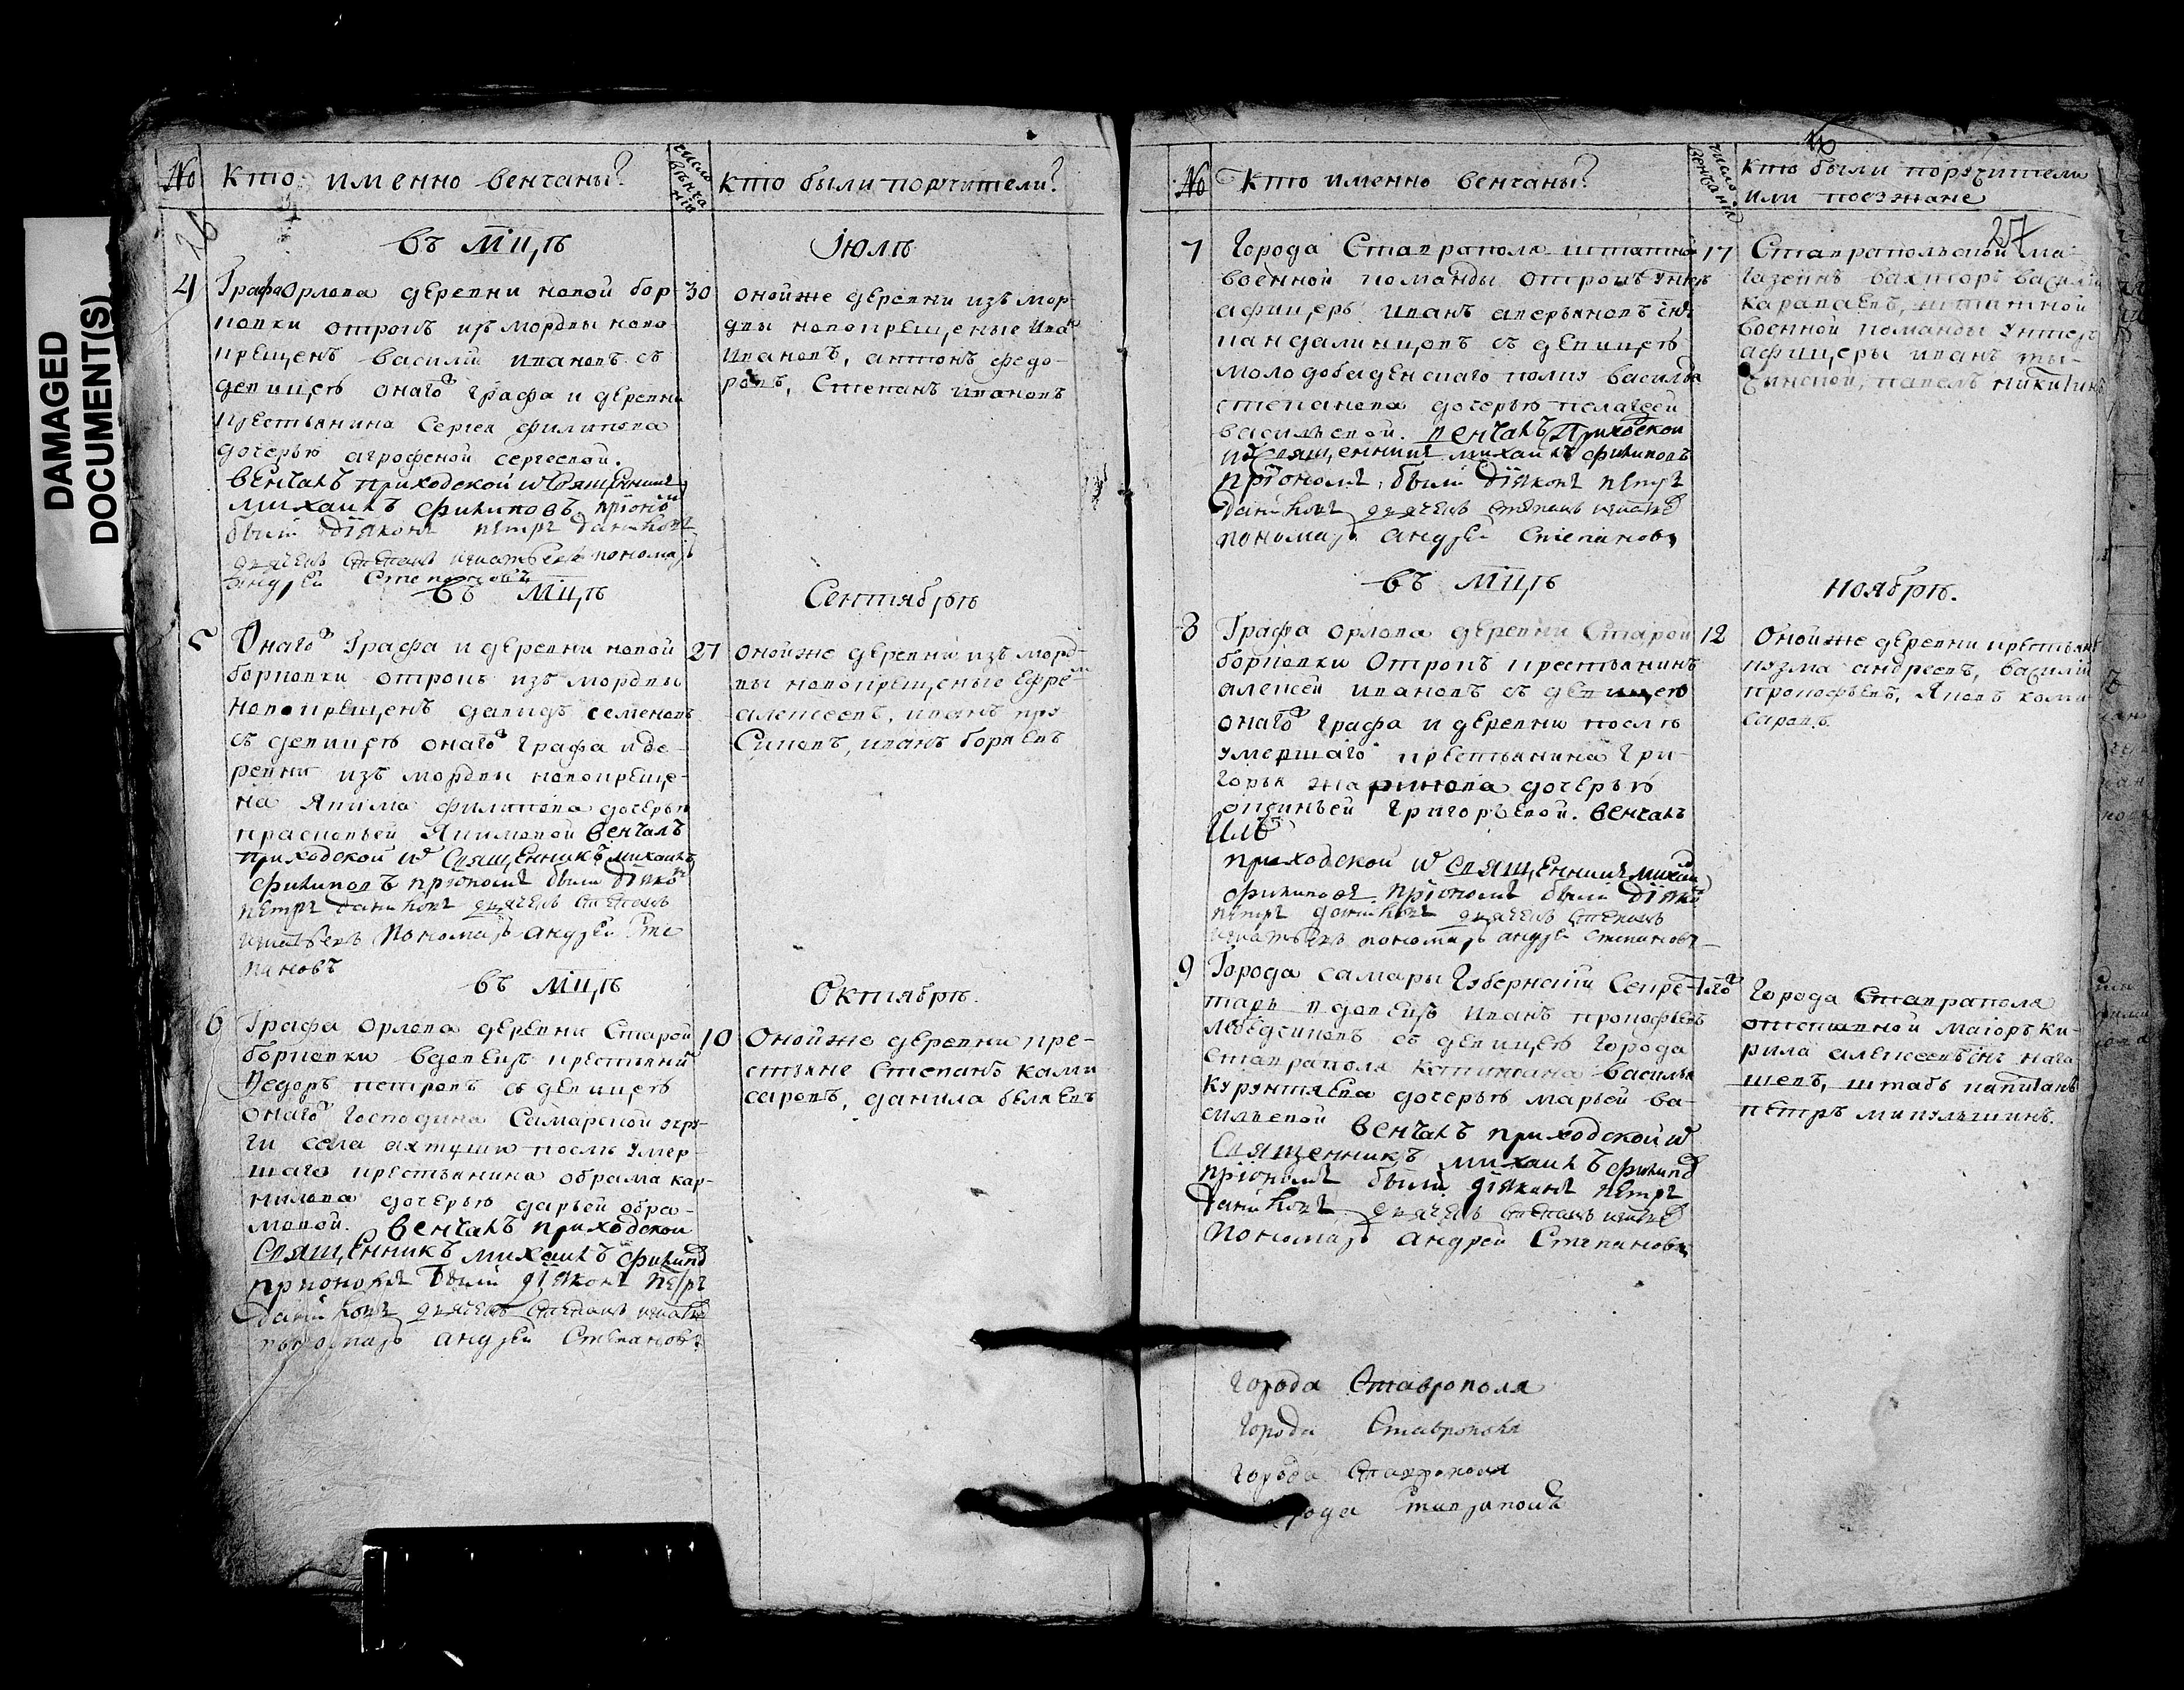 DAMAGED
DOCUMENT(S)
№ кто именно венчаны? число венчаніи кто были поручители?
26
въ мцѣ Іюлѣ
4 Графа Орлова деревни новой бор 30
ковки отрокъ из мордвы ново
крещенъ василий ивановъ съ
девицею онаго графа и деревни
крестьянина Сергея филипова
дочерью агрофеной сергеевой.
венчалъ приходской священникъ
михаилъ филиповъ, приономъ
были діаконъ петръ даниловъ
дьячекъ степанъ игнатьевъ пономарь
андрей Степановъ
оной же деревни изъ мор
двы новокрещеные ива
ивановъ, антонъ федо-
ровъ, Степанъ ивановъ
въ мцѣ Сентябрѣ
5 Онаго Графа и деревни новой 27
борковки отрокъ изъ мордвы
новокрещенъ давидъ семеновъ
съ девицею онаго графа и де-
ревни изъ мордвы новокреще-
на Якима филипова дочерью
прасковьей Якимовой венчалъ
приходской священникъ михаилъ
филиповъ приономъ были діяко
петръ даниловъ дьячекъ степанъ
игнатьевъ пономарь андрей Сте
пановъ
оной же деревни изъ морд-
вы новокрещеные Ефрем
алексеевъ, иванъ
иванъ
въ мцѣ Октябрѣ.
6 Графа Орлова деревни Старой 10
борковки вдовецъ крестьянинъ
Федоръ петровъ съ девицею
онаго Господина Самарской окру-
ги села ахтуши послѣ умер-
шаго крестьянина обрама кар-
нилова дочерью дарьей обра-
мовой. венчалъ приходской
священникъ михаилъ филипов
приономъ были діяконъ петръ
даниловъ дьячекъ степанъ игнатьев
пономарь андрей Степановъ
Оной же деревни кре-
стьяне Степанъ коми
саровъ, данила беляевъ
№ Кто именно венчаны? число венчаніи кто были поручители
или поезжане
27
7 Города Ставраполя штатной 17
военной команды отрокъ унтеръ
афицеръ иванъ аверьяновъ снъ
съ девицею
василья
степанова дочерью пелагеей
васильевой. венчалъ Приходской
священникъ михаилъ филиповъ
приономъ были діяконъ петръ
даниловъ дьячекъ степанъ игнатьев
пономарь андрей Степановъ
Ставрапольской ма-
газеинъ вахторъ василей
караваевъ, штатной
военной команды унтеръ
афицеры иванъ
павелъ никитинъ
въ мцѣ ноябрѣ.
8 Графа орлова деревни Старой 12
борковки Отрокъ крестьянинъ
алексей ивановъ съ девицею
онаго графа и деревни послѣ
умершаго крестьянина Гри-
горья жаринова дочерью
Григорьевой. венчалъ
приходской священникъ михаил
филиповъ. приономъ были діяко
петръ даниловъ дьячекъ степанъ
игнатьевъ пономарь андрей степановъ
Оной же деревни крестьяне
кузма андреевъ, василий
прокофьевъ, Яковъ коми
саровъ.
9 Города самары Губернскій Секре-
тарь вдовецъ иванъ прокофьевъ
съ девицею города
ставраполя капитана василья
дочерью марьей ва-
сильевой венчалъ приходской
священникъ михаилъ филипов
приономъ были діяконъ петръ
даниловъ дьячекъ степанъ игнатьев
Пономарь андрей Степановъ
Города Ставраполя
отставной маіоръ ки-
рила алексеевъ снъ нага
шевъ, штабъ капитанъ
петръ микулшинъ.
города Ставрополя
города Ставрополя
города Ставрополя
города Ставраполя